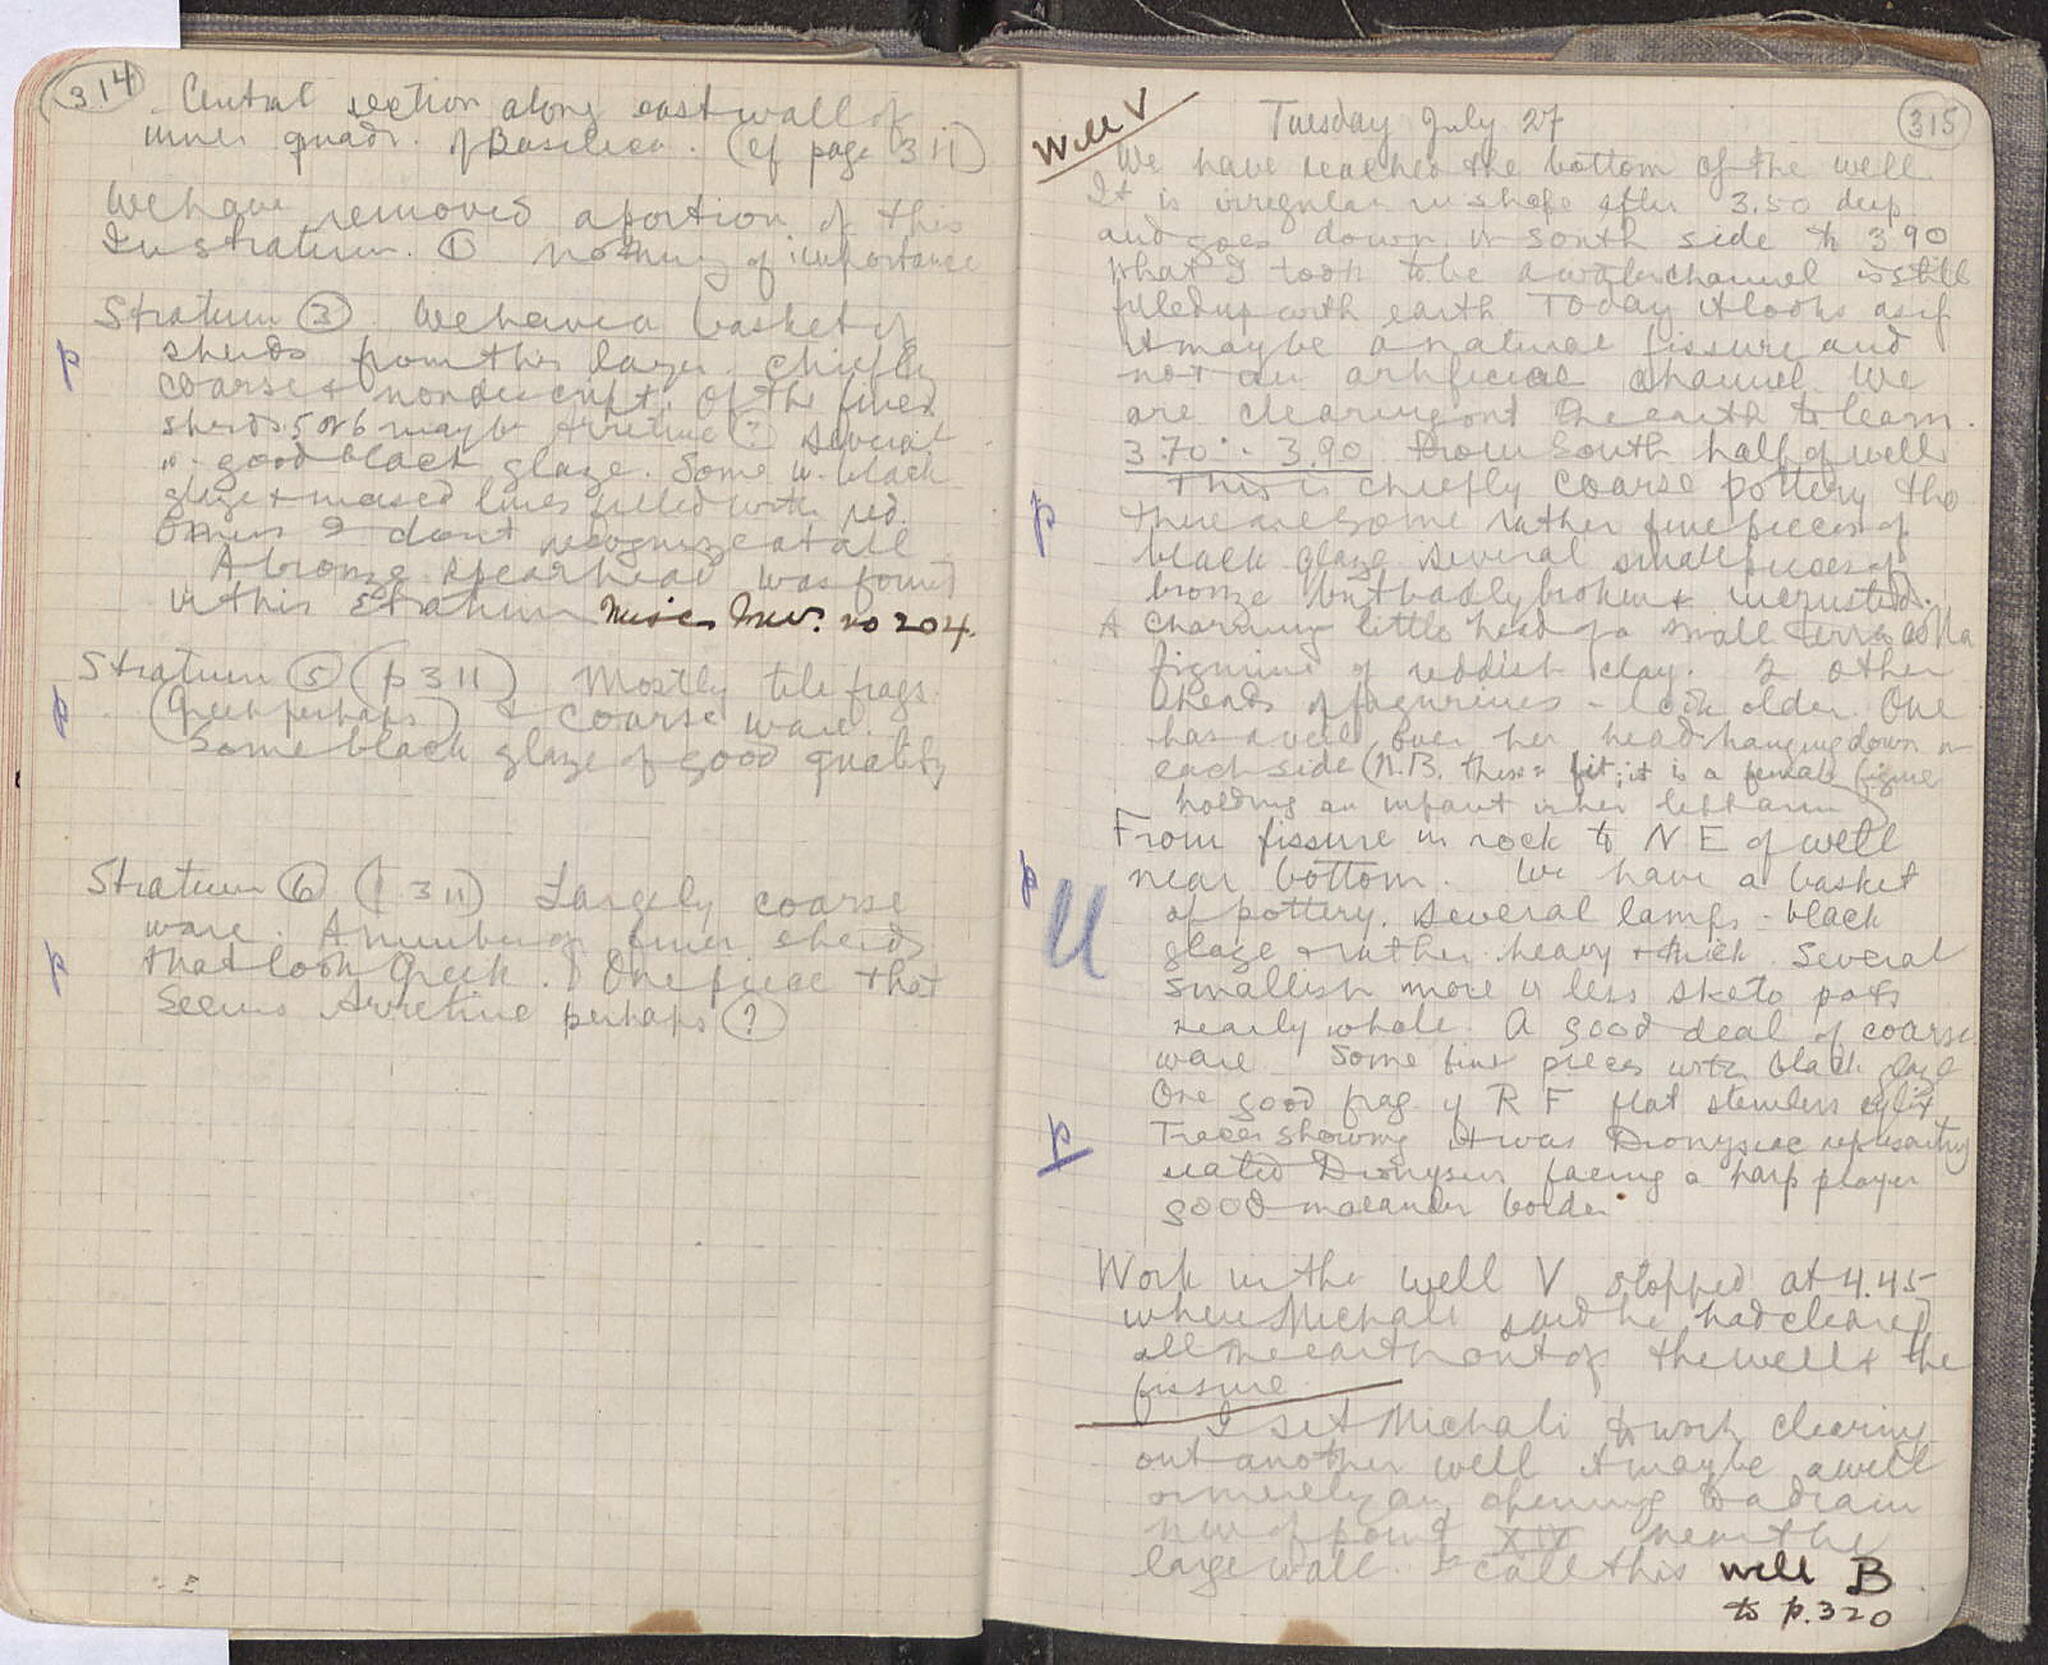 314
Central section along east wall of
inner quadr. of Basilica. (cf page 311)
We have removed a portion of this
In stratum ① nothing of importance
Stratum ③ We have a basket of
p
sherds from this layer. Chiefly
coarse & nondescript. Of the finer
sherds 5 or 6 may be Arretine (?) several
" good black glaze. Some w. black
glaze & incised lines filled with red.
Others I dont recognize at all
A bronze spearhead was found
in this stratum Misc. Inv. no 204.
Stratum ⑤ (p 311) Mostly tile frags.
p
(Greek perhaps) & coarse ware.
Some black glaze of good quality
Stratum ⑥ (p 311) Largely coarse
ware. A number of finer sherds
p
that look Greek. One piece that
seems Arretine perhaps (?)
315
Well V
Tuesday July 27
We have reached the bottom of the well.
It is irregular in shape after 3.50 deep
and goes down in south side to 3 90
What I took to be a water channel is still
filled up with earth Today it looks as if
it may be a natural fissure and
not an artificial channel. We
are clearing out the earth to learn.
3.70 - 3.90 From South half of well
This is chiefly coarse pottery tho
p
there are some rather fine pieces of
black glaze several small pieces of
bronze but badly broken & incrusted.
A charming little head of a small terra cotta
figurine of reddish clay. 2 other
heads of figurines - look older. One
has a veil over her head hanging down on
each side (N.B. these 2 fit; it is a female figure
holding an infant in her left arm)
From fissure in rock to N E of well
p
near bottom. We have a basket
U
of pottery. Several lamps - black
glaze & rather heavy & thick. Several
smallish more or less sketo pots
nearly whole. A good deal of coarse
ware Some fine pieces with black glaze
One good frag of R F flat stemless cylix
p
Traces showing it was Dionysiac representing
seated Dionysus facing a harp player
good maeander border.
Work in the well V stopped at 4.45
when Michali said he had cleared
all the earth out of the well & the
fissure
I set Michali to work clearing
out another well it may be a well
or merely an opening to a drain
NW of point XIV near the
large wall. I call this well B
to p. 320